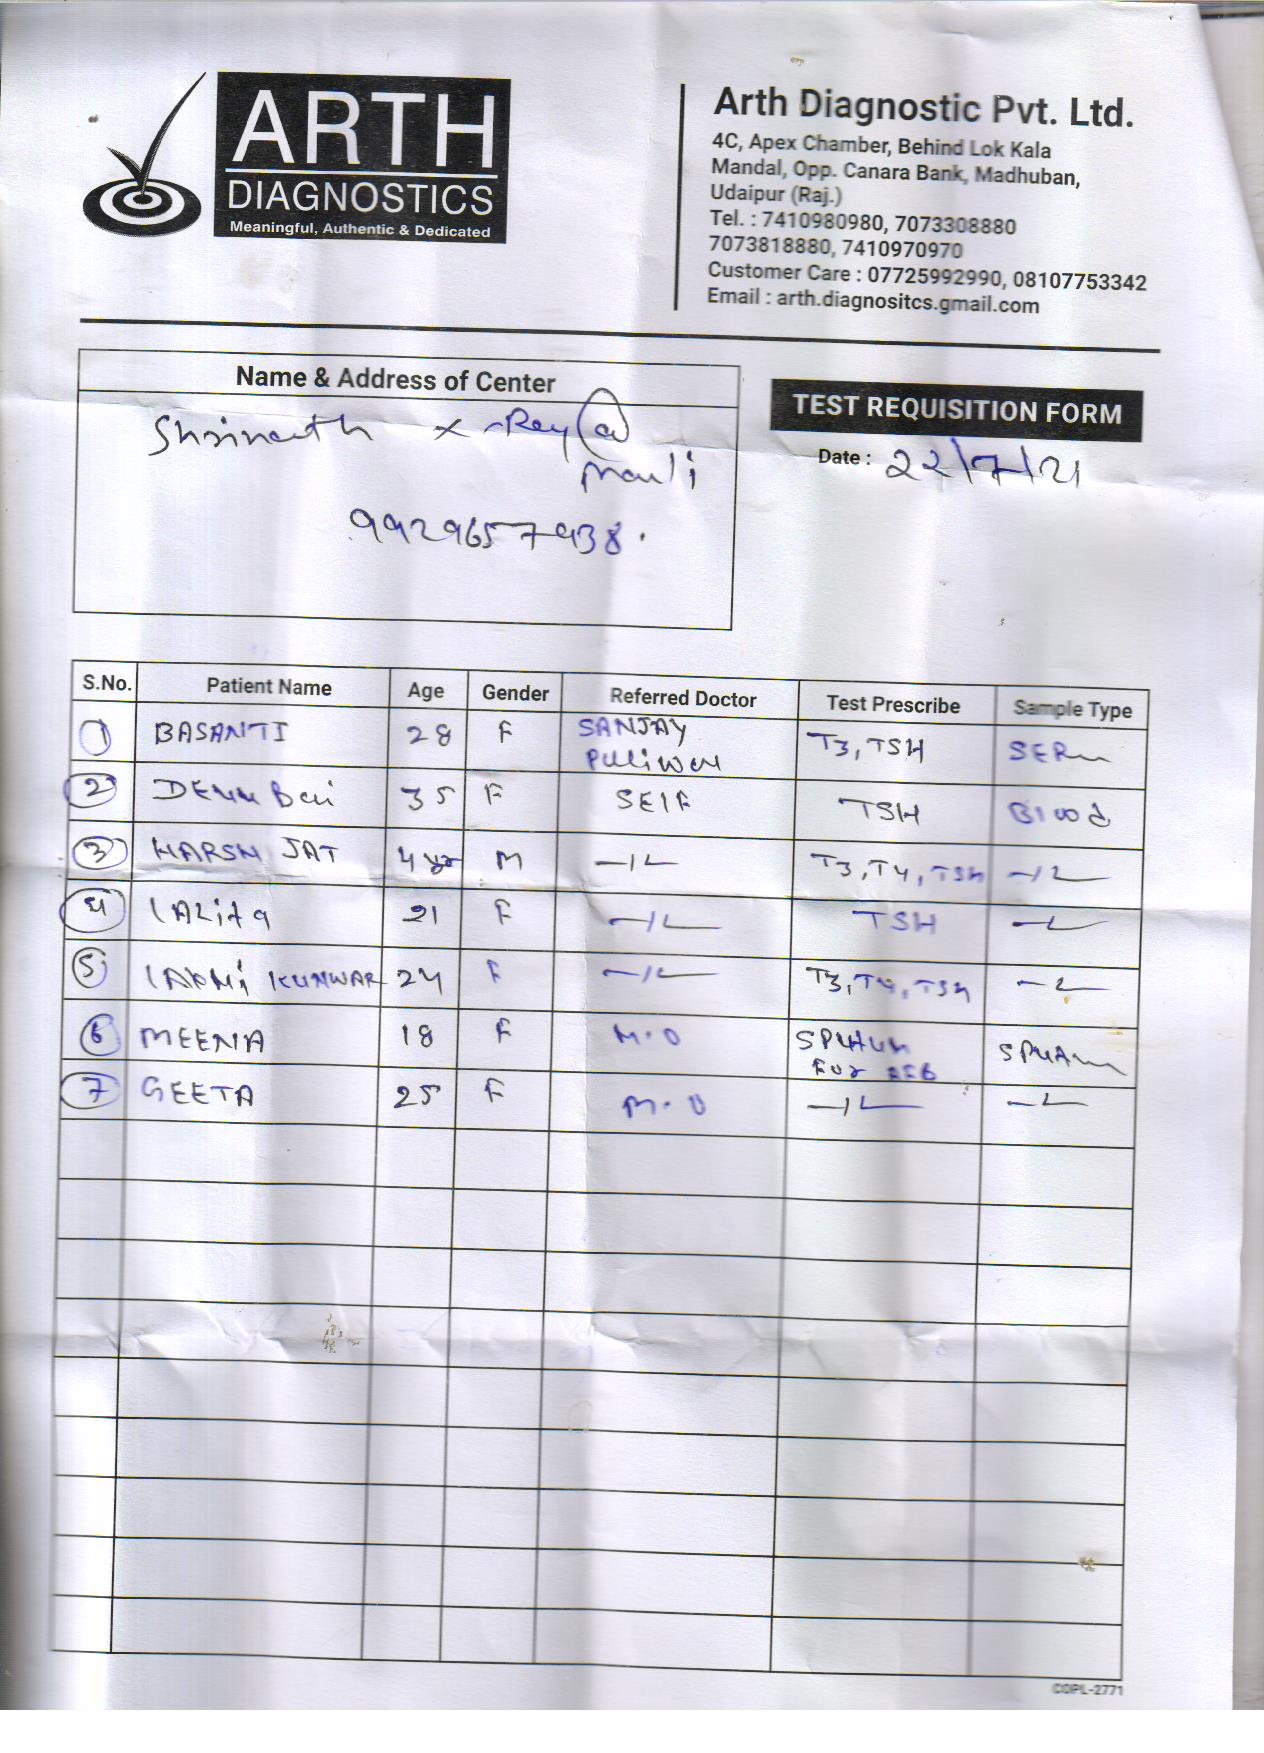 ARTH
DIAGNOSTICS
Meaningful, Authentic & Dedicated
Arth Diagnostic Pvt. Ltd.
4C, Apex Chamber, Behind Lok Kala
Mandal, Opp. Canara Bank, Madhuban,
Udaipur (Raj.)
Tel. : 7410980980, 7073308880
7073818880, 7410970970
Customer Care : 07725992990, 08107753342
Email : arth.diagnositcs.gmail.com
Name & Address of Center
Shrinath X-Ray
Mauli
TEST REQUISITION FORM
Date : 22/7/21
S.No. Patient Name Age Gender Referred Doctor Test Prescribe Sample Type
1 BASANTI 28 F SANJAY T3, TSH
2 Bai 35 F SELF TSH Blood
3 HARSH JAT 4 yr M T3, T4, TSH
4 LALITA 21 F TSH
5 KUNWAR 24 F T3, T4, TSH
6 MEENA 18 F M.O
For AFB
7 GEETA 25 F M.O
COPL-2771